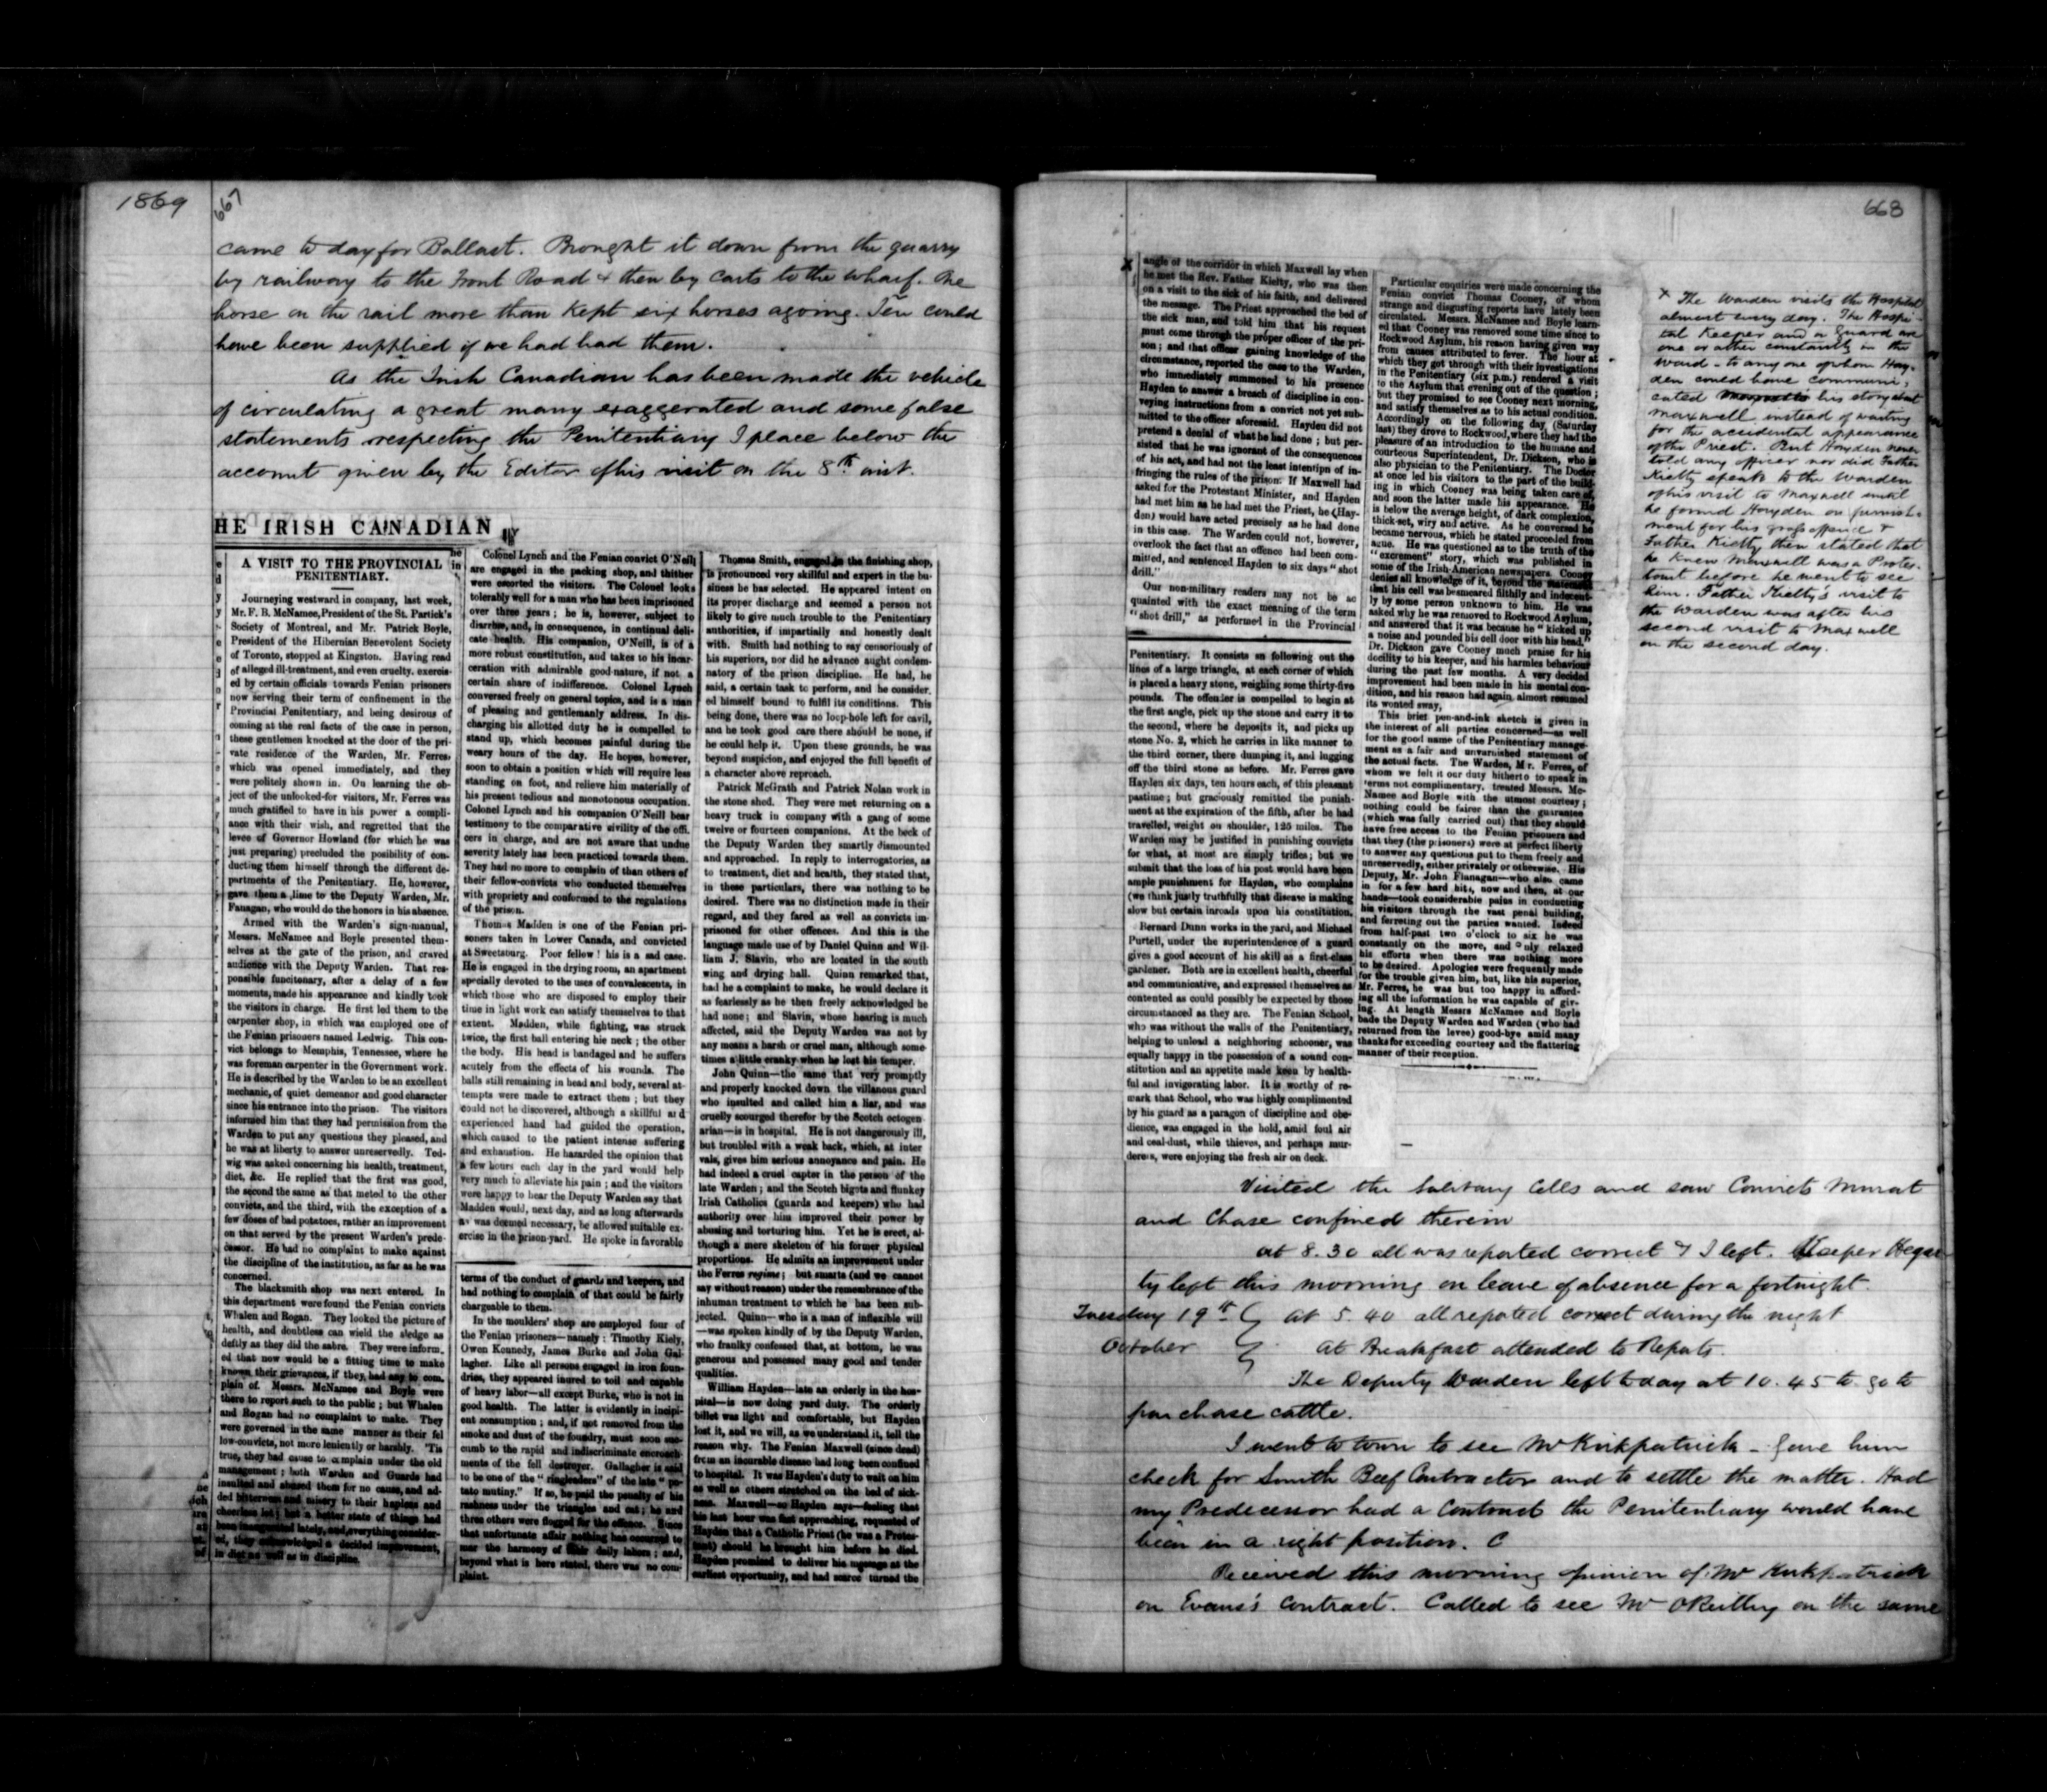 1869
667
came to day for Ballast. Brought it down from the quarry
by railway to the Front Road & then by Carts to the wharf. One
horse on the rail more than kept six horses agoing. Ten could
have been supplied if we had had them.
As the Irish Canadian has been made the vehicle
of circulating a great many exaggerated and some false
statements respecting the Penitentiary I place below the
account given by the Editor of his visit on the 8th inst.
HE IRISH CANADIAN
A VISIT TO THE PROVINCIAL
PENITENTIARY.
Journeying westward in company, last week,
Mr. F. B. McNamee, President of the St. Partick's
Society of Montreal, and Mr. Patrick Boyle,
President of the Hibernian Benevolent Society
of Toronto, stopped at Kingston. Having read
of alleged ill-treatment, and even cruelty. exercis-
ed by certain officials towards Fenian prisoners
now serving their term of confinement in the
Provincial Penitentiary, and being desirous of
coming at the real facts of the case in person,
these gentlemen knocked at the door of the pri-
vate residence of the Warden, Mr. Ferres,
which was opened immediately, and they
were politely shown in. On learning the ob-
ject of the unlooked-for visitors, Mr. Ferres was
much gratified to have in his power a compli-
ance with their wish, and regretted that the
levee of Governor Howland (for which he was
just preparing) precluded the posibility of con-
ducting them himself through the different de-
partments of the Penitentiary. He, however,
gave them a line to the Deputy Warden, Mr.
Fanagan, who would do the honors in his absence.
Armed with the Warden's sign-manual,
Messrs. McNamee and Boyle presented them-
selves at the gate of the prison, and craved
audience with the Deputy Warden. That res-
ponsible funcitonary, after a delay of a few
moments, made his appearance and kindly took
the visitors in charge. He first led them to the
carpenter shop, in which was employed one of
the Fenian prisoners named Ledwig. This con-
vict belongs to Memphis, Tennessee, where he
was foreman carpenter in the Government work.
He is described by the Warden to be an excellent
mechanic, of quiet demeanor and good character
since his entrance into the prison. The visitors
informed him that they had permission from the
Warden to put any questions they pleased, and
he was at liberty to answer unreservedly. Ted-
wig was asked concerning his health, treatment,
diet, &c. He replied that the first was good,
the second the same as that meted to the other
convicts, and the third, with the exception of a
few doses of bad potatoes, rather an improvement
on that served by the present Warden's prede-
cessor. He had no complaint to make against
the discipline of the institution, as far as he was
concerned.
The blacksmith shop was next entered. In
this department were found the Fenian convicts
Whalen and Rogan. They looked the picture of
health, and doubtless can wield the sledge as
deftly as they did the sabre. They were inform-
ed that now would be a fitting time to make
known their grievances, if they, had any to com-
plain of. Messrs. McNamee and Boyle were
there to report such to the public; but Whalen
and Rogan had no complaint to make. They
were governed in the same manner as their fel
low-convicts, not more leniently or harshly. 'Tis
true, they had cause to complain under the old
management; both Warden and Guards had
insulted and abused them for no cause, and ad-
ded bitterness and misery to their hapless and
cheerless lot; but a better state of things had
been inaugurated lately, and, everything consider-
ed, they acknowledged a decided improvement,
in diet as well as in discipline.
Colonel Lynch and the Fenian convict O'Neill
are engaged in the packing shop, and thither
were escorted the visitors. The Colonel looks
tolerably well for a man who has been imprisoned
over three years; he is, however, subject to
diarrhœa, and, in consequence, in continual deli-
cate health. His companion, O'Neill, is of a
more robust constitution, and takes to his incar-
ceration with admirable good-nature, if not a
certain share of indifference. Colonel Lynch
conversed freely on general topics, and is a man
of pleasing and gentlemanly address. In dis-
charging his allotted duty he is compelled to
stand up, which becomes painful during the
weary hours of the day. He hopes, however,
soon to obtain a position which will require less
standing on foot, and relieve him materially of
his present tedious and monotonous occupation.
Colonel Lynch and his companion O'Neill bear
testimony to the comparative civility of the offi-
cers in charge, and are not aware that undue
severity lately has been practiced towards them.
They had no more to complain of than others of
their fellow-convicts who conducted themselves
with propriety and conformed to the regulations
of the prison.
Thomas Madden is one of the Fenian pri-
soners taken in Lower Canada, and convicted
at Sweetsburg. Poor fellow! his is a sad case.
He is engaged in the drying room, an apartment
specially devoted to the uses of convalescents, in
which those who are disposed to employ their
time in light work can satisfy themselves to that
extent. Madden, while fighting, was struck
twice, the first ball entering his neck; the other
the body. His head is bandaged and he suffers
acutely from the effects of his wounds. The
balls still remaining in head and body, several at-
tempts were made to extract them; but they
could not be discovered, although a skillful and
experienced hand had guided the operation,
which caused to the patient intense suffering
and exhaustion. He hazarded the opinion that
a few hours each day in the yard would help
very much to alleviate his pain; and the visitors
were happy to hear the Deputy Warden say that
Madden would, next day, and as long afterwards
as was deemed necessary, be allowed suitable ex-
ercise in the prison-yard. He spoke in favorable
terms of the conduct of guards and keepers, and
had nothing to complain of that could be fairly
chargeable to them.
In the moulders' shop are employed four of
the Fenian prisoners—namely: Timothy Kiely,
Owen Kennedy, James Burke and John Gal-
lagher. Like all persons engaged in iron foun-
dries, they appeared inured to toil and capable
of heavy labor—all except Burke, who is not in
good health. The latter is evidently in incipi-
ent consumption; and, if not removed from the
smoke and dust of the foundry, must soon suc-
cumb to the rapid and indiscriminate encroach-
ments of the fell destroyer. Gallagher is said
to be one of the "ringleaders" of the late "po-
tato mutiny." If so, he paid the penalty of his
rashness under the triangles and cat; he and
three others were flogged for the offence. Since
that unfortunate affair nothing has occurred to
mar the harmony of their daily labors; and,
beyond what is here stated, there was no com-
plaint.
Thomas Smith, engaged in the finishing shop,
is pronounced very skillful and expert in the bu-
siness he has selected. He appeared intent on
its proper discharge and seemed a person not
likely to give much trouble to the Penitentiary
authorities, if impartially and honestly dealt
with. Smith had nothing to say censoriously of
his superiors, nor did he advance aught condem-
natory of the prison discipline. He had, he
said, a certain task to perform, and he consider-
ed himself bound to fulfil its conditions. This
being done, there was no loop-hole left for cavil,
and he took good care there should be none, if
he could help it. Upon these grounds, he was
beyond suspicion, and enjoyed the full benefit of
a character above reproach.
Patrick McGrath and Patrick Nolan work in
the stone shed. They were met returning on a
heavy truck in company with a gang of some
twelve or fourteen companions. At the beck of
the Deputy Warden they smartly dismounted
and approached. In reply to interrogatories, as
to treatment, diet and health, they stated that,
in these particulars, there was nothing to be
desired. There was no distinction made in their
regard, and they fared as well as convicts im-
prisoned for other offences. And this is the
language made use of by Daniel Quinn and Wil-
liam J. Slavin, who are located in the south
wing and drying hall. Quinn remarked that,
had he a complaint to make, he would declare it
as fearlessly as he then freely acknowledged he
had none; and Slavin, whose hearing is much
affected, said the Deputy Warden was not by
any means a harsh or cruel man, although some-
times a little cranky when he lost his temper.
John Quinn—the same that very promptly
and properly knocked down the villanous guard
who insulted and called him a liar, and was
cruelly scourged therefor by the Scotch octogen-
arian—is in hospital. He is not dangerously ill,
but troubled with a weak back, which, at inter
vals, gives him serious annoyance and pain. He
had indeed a cruel capter in the person of the
late Warden; and the Scotch bigots and flunkey
Irish Catholics (guards and keepers) who had
authority over him improved their power by
abusing and torturing him. Yet he is erect, al-
though a mere skeleton of his former physical
proportions. He admits an improvement under
the Ferres regime; but smarts (and we cannot
say without reason) under the remembrance of the
inhuman treatment to which he has been sub-
jected. Quinn—who is a man of inflexible will
—was spoken kindly of by the Deputy Warden,
who frankly confessed that, at bottom, he was
generous and possessed many good and tender
qualities.
William Hayden—late an orderly in the hos-
pital—is now doing yard duty. The orderly
billet was light and comfortable, but Hayden
lost it, and we will, as we understand it, tell the
reason why. The Fenian Maxwell (since dead)
from an incurable disease had long been confined
to hospital. It was Hayden's duty to wait on him
as well as others stretched on the bed of sick-
ness. Maxwell—so Hayden says—feeling that
his last hour was fast approaching, requested of
Hayden that a Catholic Priest (he was a Protes-
tant) should be brought him before he died.
Hayden promised to deliver his message at the
earliest opportunity, and had scarce turned the
668
x
angle of the corridor in which Maxwell lay when
he met the Rev. Father Kielty, who was then
on a visit to the sick of his faith, and delivered
the message. The Priest approached the bed of
the sick man, and told him that his request
must come through the proper officer of the pri-
son; and that officer gaining knowledge of the
circumstance, reported the case to the Warden,
who immediately summoned to his presence
Hayden to answer a breach of discipline in con-
veying instructions from a convict not yet sub-
mitted to the officer aforesaid. Hayden did not
pretend a denial of what he had done; but per-
sisted that he was ignorant of the consequences
of his act, and had not the least intention of in-
fringing the rules of the prison. If Maxwell had
asked for the Protestant Minister, and Hayden
had met him as he had met the Priest, he (Hay-
den) would have acted precisely as he had done
in this case. The Warden could not, however,
overlook the fact that an offence had been com-
mitted, and sentenced Hayden to six days "shot
drill."
Our non-military readers may not be ac
quainted with the exact meaning of the term
"shot drill," as performed in the Provincial
Penitentiary. It consists in following out the
lines of a large triangle, at each corner of which
is placed a heavy stone, weighing some thirty-five
pounds. The offender is compelled to begin at
the first angle, pick up the stone and carry it to
the second, where he deposits it, and picks up
stone No. 2, which he carries in like manner to
the third corner, there dumping it, and lugging
off the third stone as before. Mr. Ferres gave
Hayden six days, ten hours each, of this pleasant
pastime; but graciously remitted the punish-
ment at the expiration of the fifth, after he had
travelled, weight on shoulder, 125 miles. The
Warden may be justified in punishing convicts
for what, at most are simply trifles; but we
submit that the loss of his post would have been
ample punishment for Hayden, who complains
(we think justly truthfully that disease is making
slow but certain inroads upon his constitution.
Bernard Dunn works in the yard, and Michael
Purtell, under the superintendence of a guard
gives a good account of his skill as a first-class
gardener. Both are in excellent health, cheerful
and communicative, and expressed themselves as
contented as could possibly be expected by those
circumstanced as they are. The Fenian School,
who was without the walls of the Penitentiary,
helping to unload a neighboring schooner, was
equally happy in the possession of a sound con-
stitution and an appetite made keen by health-
ful and invigorating labor. It is worthy of re-
mark that School, who was highly complimented
by his guard as a paragon of discipline and obe-
dience, was engaged in the hold, amid foul air
and coal-dust, while thieves, and perhaps mur-
derers, were enjoying the fresh air on deck.
Particular enquiries were made concerning the
Fenian convict Thomas Cooney, of whom
strange and disgusting reports have lately been
circulated. Messrs. McNamee and Boyle learn-
ed that Cooney was removed some time since to
Rockwood Asylum, his reason having given way
from causes attributed to fever. The hour at
which they got through with their investigations
in the Penitentiary (six p.m.) rendered a visit
to the Asylum that evening out of the question;
but they promised to see Cooney next morning,
and satisfy themselves as to his actual condition.
Accordingly on the following day (Saturday
last) they drove to Rockwood, where they had the
pleasure of an introduction to the humane and
courteous Superintendent, Dr. Dickson, who is
also physician to the Penitentiary. The Doctor
at once led his visitors to the part of the build-
ing in which Cooney was being taken care of,
and soon the latter made his appearance. He
is below the average height, of dark complexion,
thick-set, wiry and active. As he conversed he
became nervous, which he stated proceeded from
ague. He was questioned as to the truth of the
"excrement" story, which was published in
some of the Irish-American newspapers. Cooney
denies all knowledge of it, beyond the statement
that his cell was besmeared filthily and indecent-
ly by some person unknown to him. He was
asked why he was removed to Rockwood Asylum,
and answered that it was because he "kicked up
a noise and pounded his cell door with his head."
Dr. Dickson gave Cooney much praise for his
docility to his keeper, and his harmles behaviour
during the past few months. A very decided
improvement had been made in his mental con-
dition, and his reason had again almost resumed
its wonted sway,
This brief pen-and-ink sketch is given in
the interest of all parties concerned—as well
for the good name of the Penitentiary manage-
ment as a fair and unvarnished statement of
the actual facts. The Warden, Mr. Ferres, of
whom we felt it our duty hitherto to speak in
terms not complimentary, treated Messrs. Mc-
Namee and Boyle with the utmost courtesy;
nothing could be fairer than the guarantee
(which was fully carried out) that they should
have free access to the Fenian prisoners and
that they (the prisoners) were at perfect liberty
to answer any questions put to them freely and
unreservedly, either privately or otherwise. His
Deputy, Mr. John Flanagan—who also came
in for a few hard hits, now and then, at our
hands—took considerable pains in conducting
his visitors through the vast penal building,
and ferreting out the parties wanted. Indeed
from half-past two o'clock to six he was
constantly on the move, and only relaxed
his efforts when there was nothing more
to be desired. Apologies were frequently made
for the trouble given him, but, like his superior,
Mr. Ferres, he was but too happy in afford-
ing all the information he was capable of giv-
ing. At length Messrs McNamee and Boyle
bade the Deputy Warden and Warden (who had
returned from the levee) good-bye amid many
thanks for exceeding courtesy and the flattering
manner of their reception.
x The Warden visits the Hospital
almost every day. The Hospi-
tal Keeper and a Guard are
one or other constantly in the
Ward - to any one of whom Hay-
den could have communi-
cated his story about
Maxwell instead of waiting
for the accidental appearance
of the Priest. But Hayden never
told any officer nor did Father
Kielty speak to the Warden
of his visit to Maxwell until
he found Hayden on punish-
ment for his gross offence &
Father Kielty then stated that
he knew Maxwell was a Protes-
tant before he went to see
him. Father Kielty's visit to
the Warden was after his
second visit to Maxwell
on the second day.
Visited the Solitary Cells and saw Convicts Murat
and Chase confined therein
at 8.30 all was reported correct & I left. Keeper Hegar-
ty left this morning on leave of absence for a fortnight.
Tuesday 19th at 5.40 all reported correct during the night
October At Breakfast attended to Reports.
The Deputy Warden left to day at 10.45 to go to
purchase cattle.
I went to town to see Mr Kirkpatrick - Gave him
check for Smith Beef Contractor and to settle the matter. Had
my Predecessor had a Contract the Penitentiary would have
been in a right position.
Received this morning opinion of Mr Kirkpatrick
on Evans's Contract. Called to see Mr O'Reilly on the same